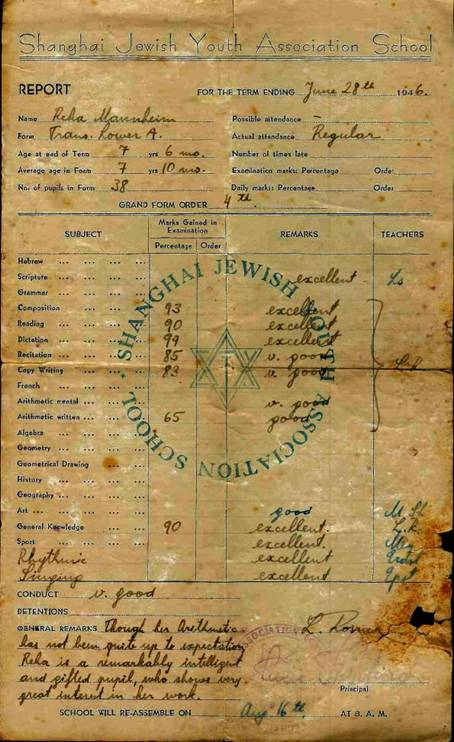 Shanghai Jewish Youth Association School
REPORT FOR THE TERM ENDING June 28th 1946.
Name Reha Mannheim Possible attendance –
Form Trans. Lower A. Actual attendance Regular
Age at end of Term 7 yrs 6 mo. Number of times late
Average age in Form 7 yrs 10 mo. Examination marks: Percentage Order
No. of pupils in Form 38 Daily marks: Percentage Order
GRAND FORM ORDER 4th.
SUBJECT Marks Gained in Examination REMARKS TEACHERS
Percentage Order
Hebrew ... ... ...
Scripture ... ... ... excellent
Grammar ... ... ...
Composition ... ... 93 excellent
Reading ... ... ... 90 excellent
Dictation ... ... ... 99 excellent
Recitation ... ... ... 85 v. good
Copy Writing ... ... 83 v. good L.R.
French ... ... ...
Arithmetic mental ... ... v. good
Arithmetic written ... ... 65 good
Algebra ... ... ...
Geometry ... ... ...
Geometrical Drawing ...
History ... ... ...
Geography ... ... ...
Art ... ... ... good
General Knowledge ... 90 excellent. L.R.
Sport ... ... ... excellent.
Rhythmic excellent
Singing excellent
SHANGHAI JEWISH YOUTH ASSOCIATION SCHOOL
CONDUCT v. good
DETENTIONS
GENERAL REMARKS Though her Arithmetic
has not been quite up to expectation
Reha is a remarkably intelligent
and gifted pupil, who shows very
great interest in her work.
Principal
SCHOOL WILL RE-ASSEMBLE ON Aug. 16th. AT 8 A.M.